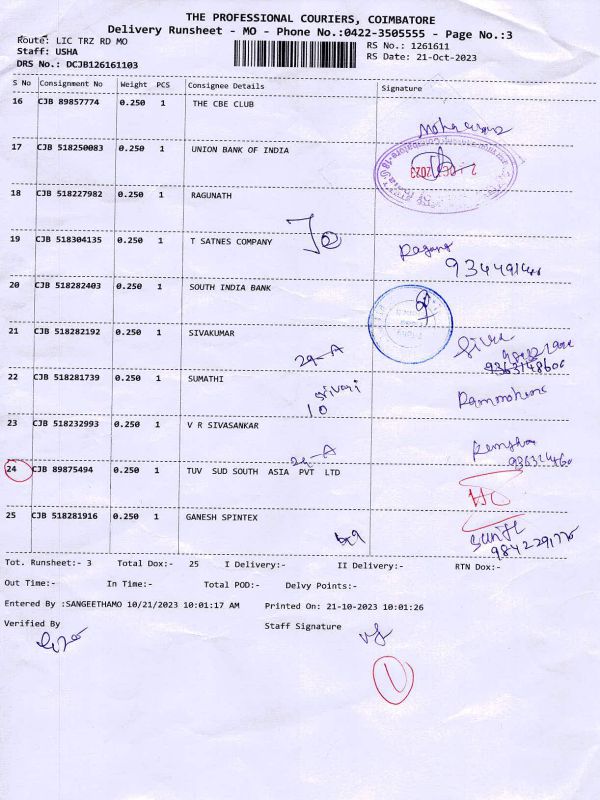 THE PROFESSIONAL COURIERS, COIMBATORE
Delivery Runsheet - MO - Phone No.:0422-3505555 - Page No.:3
Route: LIC TRZ RD MO
RS No.: 1261611
Staff: USHA
RS Date: 21-Oct-2023
DRS No.: DCJB126161103
S No Consignment No Weight PCS Consignee Details Signature
16 CJB 89857774 0.250 1 THE CBE CLUB
17 CJB 518250083 0.250 1 UNION BANK OF INDIA
18 CJB 518227982 0.250 1 RAGUNATH
19 CJB 518304135 0.250 1 T SATNES COMPANY
20 CJB 518282403 0.250 1 SOUTH INDIA BANK
21 CJB 518282192 0.250 1 SIVAKUMAR
29-A
9363148606
22 CJB 518281739 0.250 1 SUMATHI
10
23 CJB 518232993 0.250 1 V R SIVASANKAR
29-A
24 CJB 89875494 0.250 1 TUV SUD SOUTH ASIA PVT LTD
HO
25 CJB 518281916 0.250 1 GANESH SPINTEX
Tot. Runsheet:- 3 Total Dox:- 25 I Delivery:- II Delivery:- RTN Dox:-
Out Time:- In Time:- Total POD:- Delvy Points:-
Entered By :SANGEETHAMO 10/21/2023 10:01:17 AM Printed On: 21-10-2023 10:01:26
Verified By Staff Signature